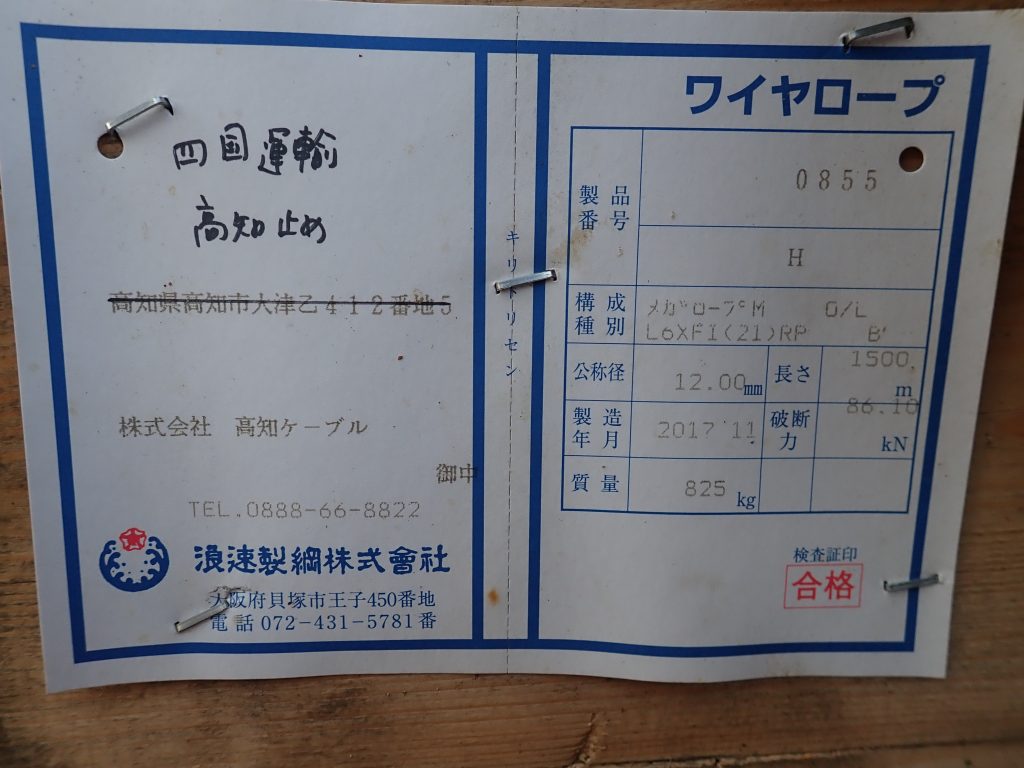 四国運輸
高知止め
高知県高知市大津乙412番地5
株式会社 高知ケーブル
御中
TEL.0888-66-8822
浪速製綱株式會社
大阪府貝塚市王子450番地
電話 072-431-5781番
キリトリセン
ワイヤロープ
製品番号 0855
H
構成種別 メガロープM O/L
L6XFI(21)RP B'
公称径 12.00mm 長さ 1500 m
製造年月 2017 11 破断力 86.10 kN
質量 825 kg
検査証印
合格